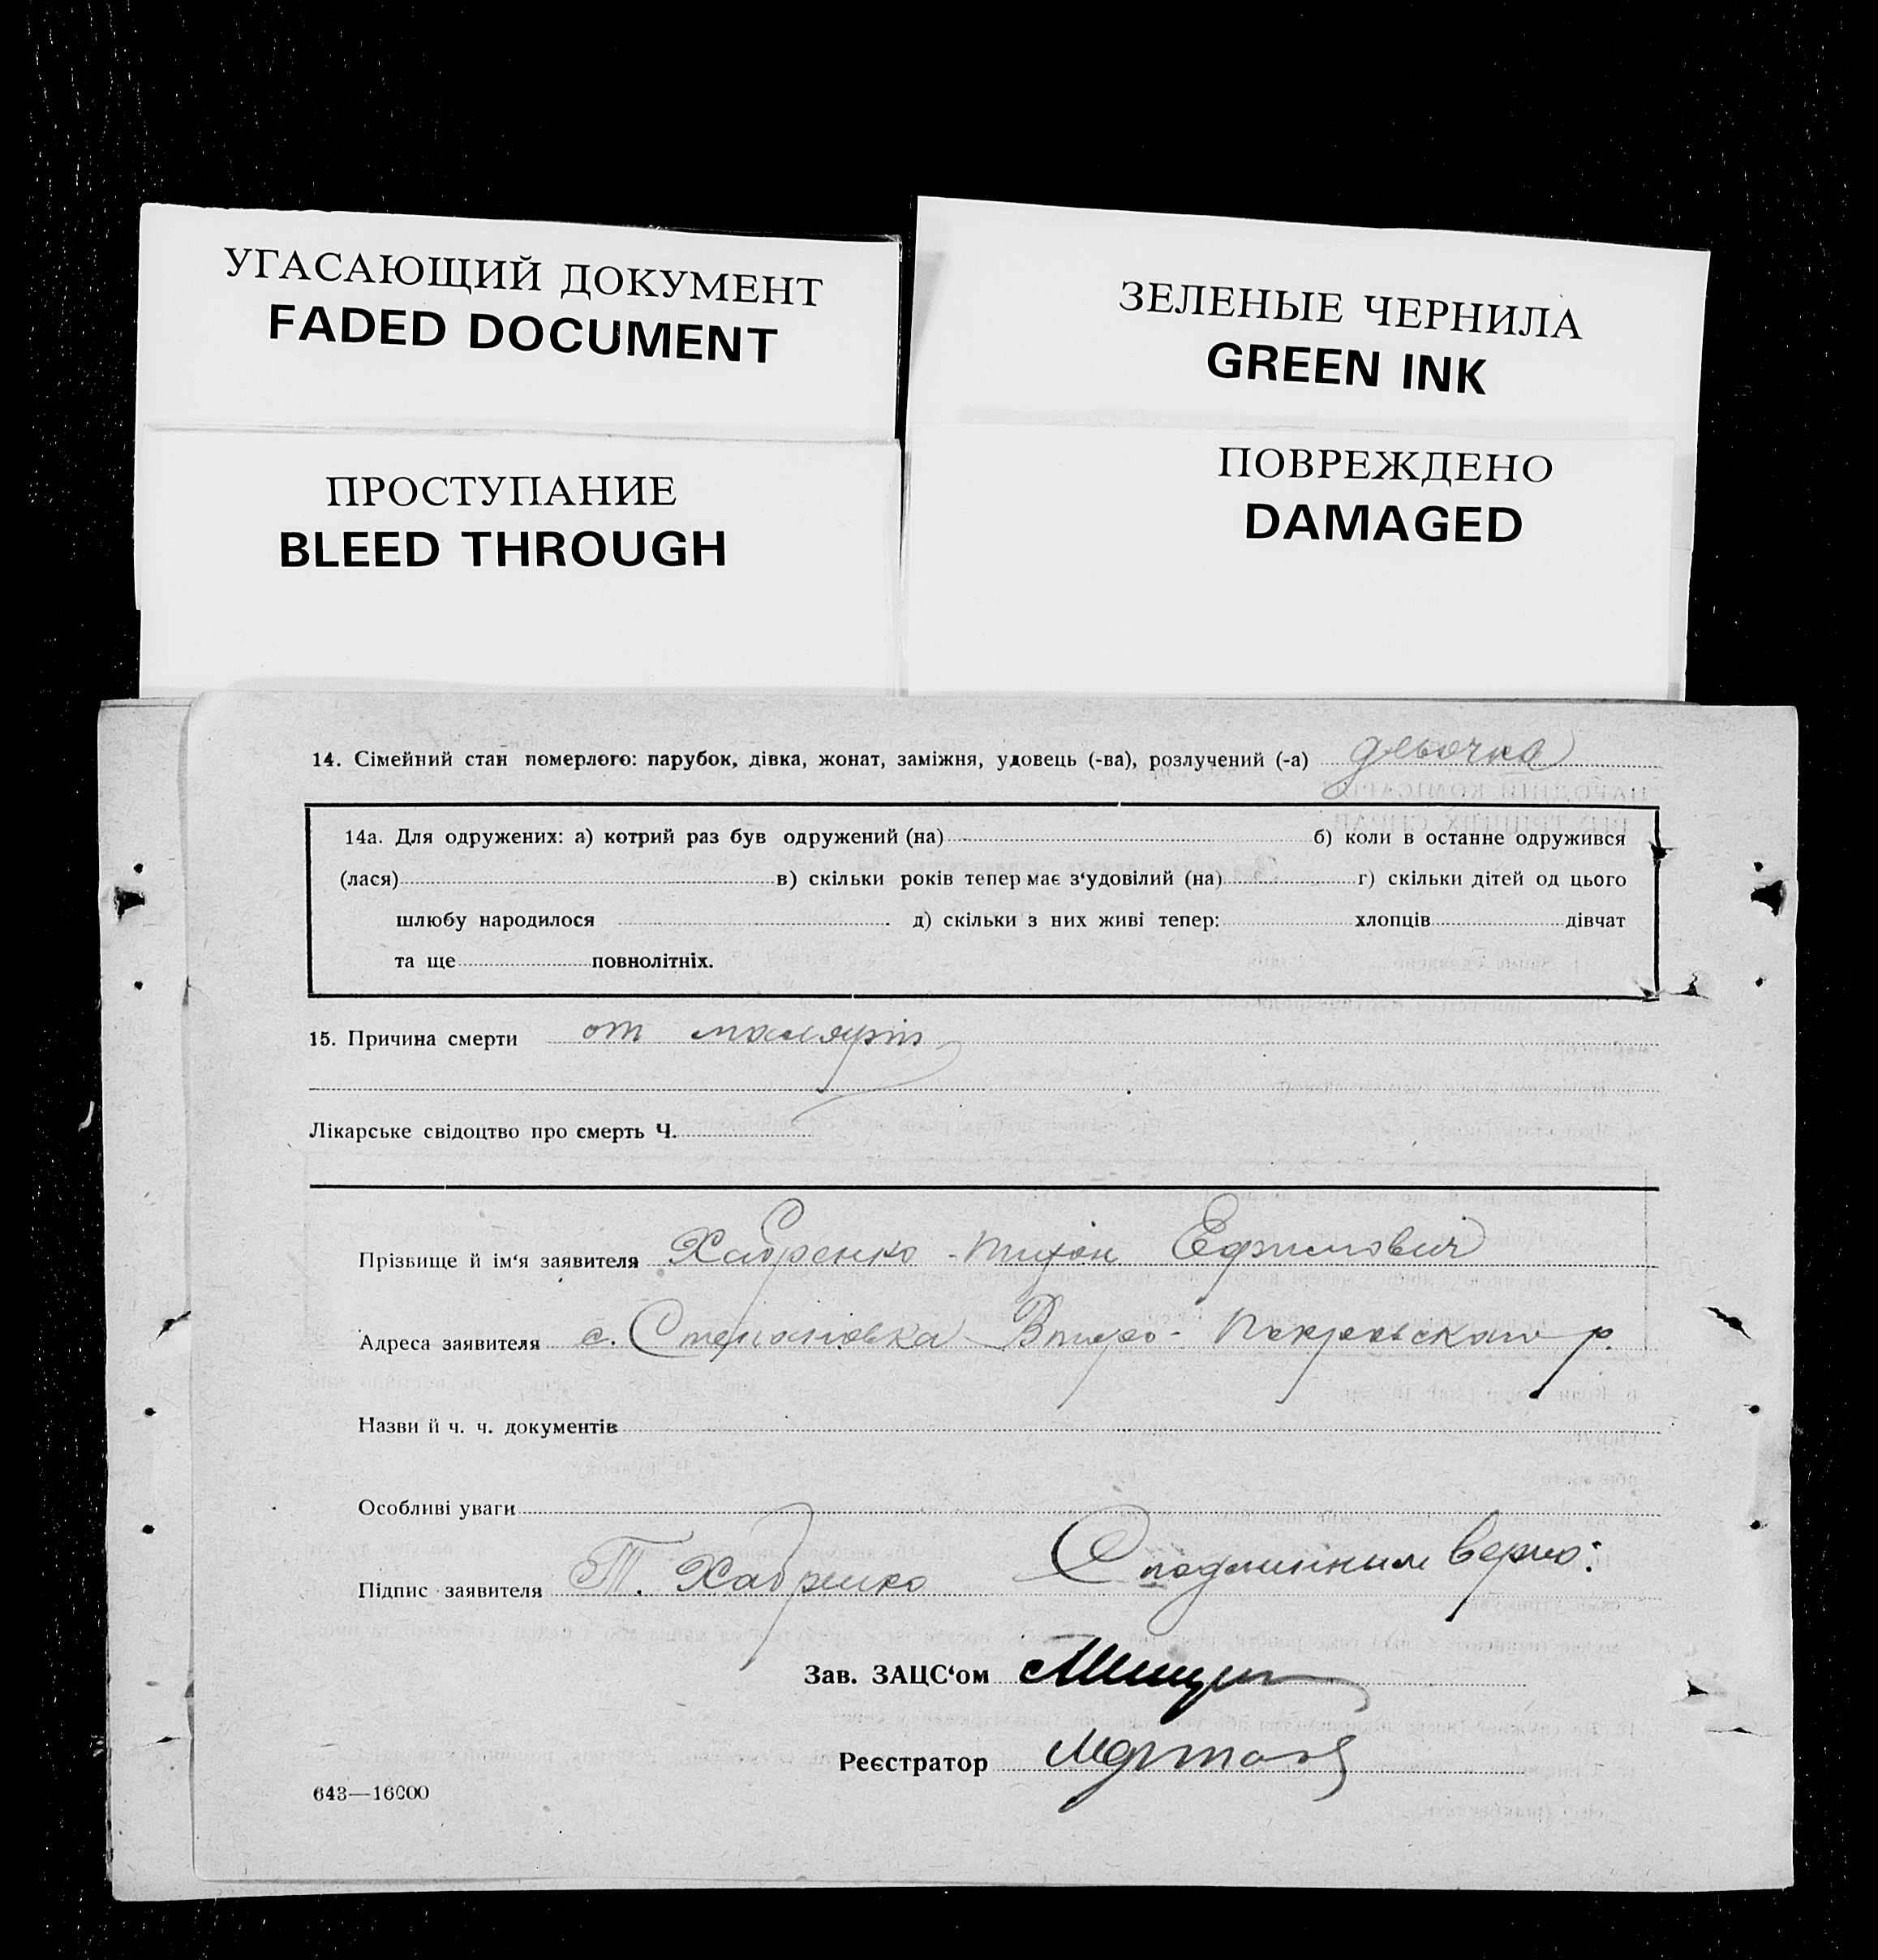 УГАСАЮЩИЙ ДОКУМЕНТ
FADED DOCUMENT
ЗЕЛЕНЫЕ ЧЕРНИЛА
GREEN INK
ПРОСТУПАНИЕ
BLEED THROUGH
ПОВРЕЖДЕНО
DAMAGED
14. Сімейний стан померлого: парубок, дівка, жонат, заміжня, удовець (-ва), розлучений (-а) девочка
14а. Для одружених: а) котрий раз був одружений (на) б) коли в останне одружився
(лася) в) скільки років тепер має з‘удовілий (на) г) скільки дітей од цього
шлюбу народилося д) скільки з них живі тепер: хлопців дівчат
та ще повнолітніх.
15. Причина смерти от малярії
Лікарське свідоцтво про смерть Ч.
Прізвище й ім‘я заявителя Хабренко Тихон Ефимович
Адреса заявителя с. Степановка Втуро-Покровского р.
Назви й ч. ч. документів
Особливі уваги
Підпис заявителя Т. Хабренко С подлинным верно:
Зав. ЗАЦС‘ом
Реєстратор
643—16000